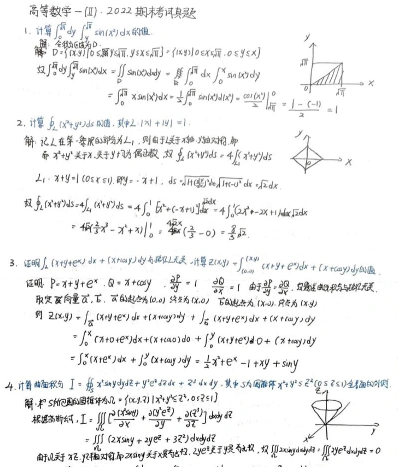 高等数学-(II). 2022期末考试真题
1. 计算∫₀^√π dy ∫_y^√π sin(x²)dx 的值.
解: 令积分区域为D.
D={(x,y)|0≤y≤√π, y≤x≤√π}={(x,y)|0≤x≤√π, 0≤y≤x}
故 ∫₀^√π dy ∫_y^√π sin(x²)dx = ∬_D sin(x²)dxdy = ∫₀^√π dx ∫₀^x sin(x²)dy
= ∫₀^√π x sin(x²)dx = ½∫₀^√π sin(x²)d(x²) = = 1-(-1)/2 = 1
2. 计算∮_L (x²+y²)ds 的值, 其中L: |x|+|y|=1.
解: 记L在第一象限的部分为L₁, 则由于L关于x轴, y轴对称, 即
而 x²+y² 关于x, 关于y均为偶函数, 故 ∮_L (x²+y²)ds = 4∫_L₁ (x²+y²)ds
L₁: x+y=1 (0≤x≤1), 即y=-x+1, ds = = √(1+(-1)²) dx = √2 dx.
故 ∮_L (x²+y²)ds = 4∫_L₁ (x²+y²)ds = 4∫₀¹ [x²+(-x+1)²]√2dx = 4∫₀¹ (2x²-2x+1)√2dx
= 4√2(⅔x³-x²+x)|₀¹ = 4√2(⅔-0) = 8/3 √2.
3. 证明∫_L (x+y+eˣ)dx + (x+cosy)dy 与路径无关, 计算 Z(x,y)=∫_(0,0)^(x,y) (x+y+eˣ)dx + (x+cosy)dy 的值.
证明: P=x+y+eˣ, Q=x+cosy. ∂P/∂y=1 ∂Q/∂x=1 由于∂P/∂y=∂Q/∂x, 故曲线积分与路径无关.
的起点为(0,0) 终点为(x,0) 的起点为(x,0), 终点为(x,y)
则 Z(x,y) = ∫ (x+y+eˣ)dx + (x+cosy)dy + ∫ (x+y+eˣ)dx + (x+cosy)dy
= ∫₀^x (x+0+eˣ)dx + (x+cos0)d0 + ∫₀^y (x+y+eˣ)·0 + (x+cosy)dy
= ∫₀^x (x+eˣ)dx + ∫₀^y (x+cosy)dy = ½x²+eˣ-1+xy+siny
4. 计算曲面积分 I = ∯_S x²sinydydz + y²eᶻdzdx + z³dxdy, 其中S为圆锥 x²+y²≤z² (0≤z≤1)
解: 求S所包围的圆锥体为Ω={(x,y,z)|x²+y²≤z², 0≤z≤1}
I = ∭_Ω [∂(x²siny)/∂x + ∂(y²eᶻ)/∂y + ∂(z³)/∂z] dxdydz
= ∭_Ω (2xsiny + 2yeᶻ + 3z²)dxdydz
由于Ω关于 对称, 即2xsiny关于x具有奇性, 2yeᶻ关于y具有奇性, 故 ∭_Ω 2xsinydxdydz = ∭_Ω 2yeᶻdxdydz = 0